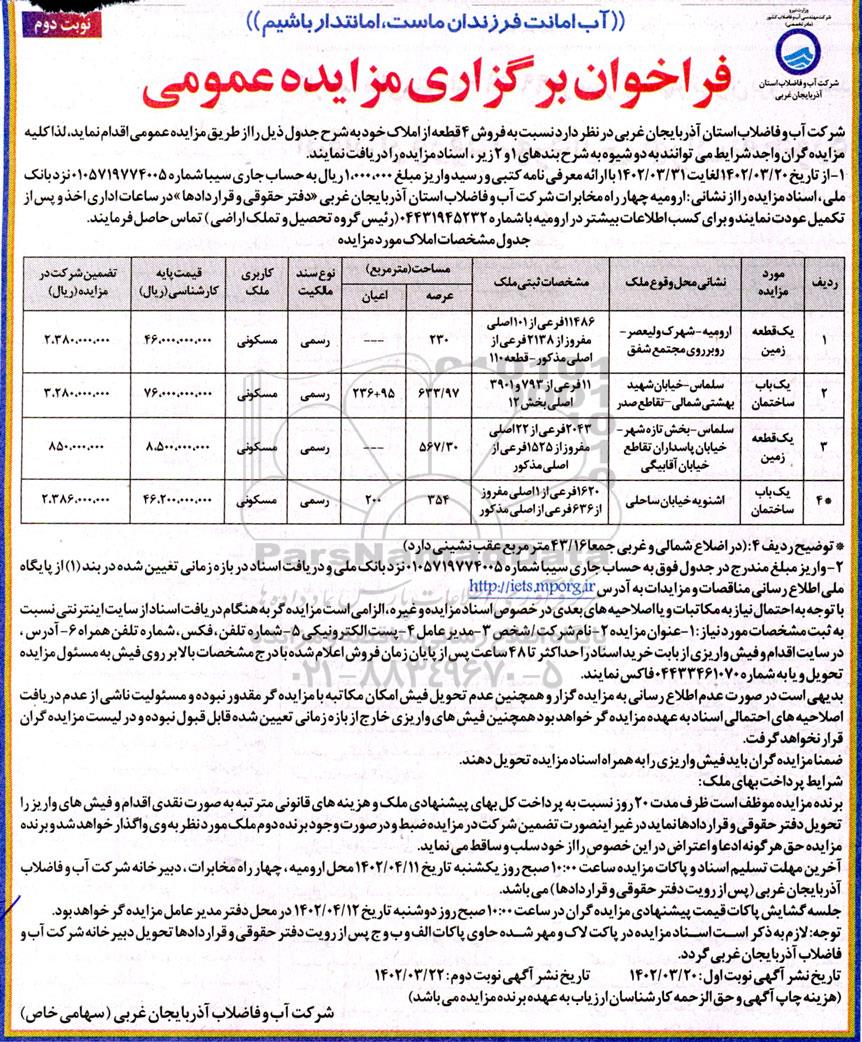 ((آب امانت فرزندان ماست، امانتدار باشیم))
نوبت دوم
وزارت نیرو
شرکت مهندسی آب و فاضلاب کشور
(مادر تخصصی)
شرکت آب و فاضلاب استان
آذربایجان غربی
فراخوان برگزاری مزایده عمومی
شرکت آب و فاضلاب استان آذربایجان غربی در نظر دارد نسبت به فروش ۴ قطعه از املاک خود به شرح جدول ذیل را از طریق مزایده عمومی اقدام نماید، لذا کلیه
مزایده گران واجد شرایط می توانند به دو شیوه به شرح بندهای ۱ و ۲ زیر، اسناد مزایده را دریافت نمایند.
۱- از تاریخ ۱۴۰۲/۰۳/۲۰ لغایت ۱۴۰۲/۰۳/۳۱ با ارائه معرفی نامه کتبی و رسید واریز مبلغ ۱،۰۰۰،۰۰۰ ریال به حساب جاری سیبا شماره ۰۱۰۵۷۱۹۷۷۴۰۰۵ نزد بانک
ملی، اسناد مزایده را از نشانی: ارومیه چهار راه مخابرات شرکت آب و فاضلاب استان آذربایجان غربی «دفتر حقوقی و قراردادها» در ساعات اداری اخذ و پس از
تکمیل عودت نمایند و برای کسب اطلاعات بیشتر در ارومیه با شماره ۰۴۴۳۱۹۴۵۲۳۲ (رئیس گروه تحصیل و تملک اراضی) تماس حاصل فرمایند.
جدول مشخصات املاک مورد مزایده
ردیف | مورد مزایده | نشانی محل وقوع ملک | مشخصات ثبتی ملک | مساحت (متر مربع) عرصه | اعیان | نوع سند مالکیت | کاربری ملک | قیمت پایه کارشناسی (ریال) | تضمین شرکت در مزایده (ریال)
۱ | یک قطعه زمین | ارومیه- شهرک ولیعصر- روبروی مجتمع شفق | ۱۱۴۸۶ فرعی از ۱۰۱ اصلی مفروز از ۲۱۳۸ فرعی از اصلی مذکور- قطعه ۱۱۰ | ۲۳۰ | --- | رسمی | مسکونی | ۴۶،۰۰۰،۰۰۰،۰۰۰ | ۲،۳۸۰،۰۰۰،۰۰۰
۲ | یک باب ساختمان | سلماس- خیابان شهید بهشتی شمالی- تقاطع صدر | ۱۱ فرعی از ۷۹۳ و ۳۹۰۱ اصلی بخش ۱۲ | ۶۳۳/۹۷ | ۲۳۶+۹۵ | رسمی | مسکونی | ۷۶،۰۰۰،۰۰۰،۰۰۰ | ۳،۲۸۰،۰۰۰،۰۰۰
۳ | یک قطعه زمین | سلماس- بخش تازه شهر- خیابان پاسداران تقاطع خیابان آقابیگی | ۲۰۴۳ فرعی از ۲۲ اصلی مفروز از ۱۵۲۵ فرعی از اصلی مذکور | ۵۶۷/۳۰ | --- | رسمی | مسکونی | ۸،۵۰۰،۰۰۰،۰۰۰ | ۸۵۰،۰۰۰،۰۰۰
*۴ | یک باب ساختمان | اشنویه خیابان ساحلی | ۱۶۲۰ فرعی از ۱ اصلی مفروز از ۶۳۶ فرعی از اصلی مذکور | ۳۵۴ | ۲۰۰ | رسمی | مسکونی | ۴۶،۲۰۰،۰۰۰،۰۰۰ | ۲،۳۸۶،۰۰۰،۰۰۰
* توضیح ردیف ۴: (در اضلاع شمالی و غربی جمعا ۴۳/۱۶ متر مربع عقب نشینی دارد)
۲- واریز مبلغ مندرج در جدول فوق به حساب جاری سیبا شماره ۰۱۰۵۷۱۹۷۷۴۰۰۵ نزد بانک ملی و دریافت اسناد در بازه زمانی تعیین شده در بند (۱) از پایگاه
ملی اطلاع رسانی مناقصات و مزایدات به آدرس http://iets.mporg.ir
با توجه به احتمال نیاز به مکاتبات و یا اصلاحیه های بعدی در خصوص اسناد مزایده و غیره، الزامی است مزایده گر به هنگام دریافت اسناد از سایت اینترنتی نسبت
به ثبت مشخصات مورد نیاز: ۱- عنوان مزایده ۲- نام شرکت/شخص ۳- مدیر عامل ۴- پست الکترونیکی ۵- شماره تلفن، فکس، شماره تلفن همراه ۶- آدرس،
در سایت اقدام و فیش واریزی از بابت خرید اسناد را حداکثر تا ۴۸ ساعت پس از پایان زمان فروش اعلام شده با درج مشخصات بالا بر روی فیش به مسئول مزایده
تحویل و یا به شماره ۰۴۴۳۳۴۶۱۰۷۰ فاکس نمایند.
بدیهی است در صورت عدم اطلاع رسانی به مزایده گزار و همچنین عدم تحویل فیش امکان مکاتبه با مزایده گر مقدور نبوده و مسئولیت ناشی از عدم دریافت
اصلاحیه های احتمالی اسناد به عهده مزایده گر خواهد بود همچنین فیش های واریزی خارج از بازه زمانی تعیین شده قابل قبول نبوده و در لیست مزایده گران
قرار نخواهد گرفت.
ضمنا مزایده گران باید فیش واریزی را به همراه اسناد مزایده تحویل دهند.
شرایط پرداخت بهای ملک:
برنده مزایده موظف است ظرف مدت ۲۰ روز نسبت به پرداخت کل بهای پیشنهادی ملک و هزینه های قانونی مترتبه به صورت نقدی اقدام و فیش های واریز را
تحویل دفتر حقوقی و قراردادها نماید در غیر اینصورت تضمین شرکت در مزایده ضبط و در صورت وجود برنده دوم ملک مورد نظر به وی واگذار خواهد شد و برنده
مزایده حق هر گونه ادعا و اعتراض در این خصوص را از خود سلب و ساقط می نماید.
آخرین مهلت تسلیم اسناد و پاکات مزایده ساعت ۱۰:۰۰ صبح روز یکشنبه تاریخ ۱۴۰۲/۰۴/۱۱ محل ارومیه، چهار راه مخابرات، دبیرخانه شرکت آب و فاضلاب
آذربایجان غربی (پس از رویت دفتر حقوقی و قراردادها) می باشد.
جلسه گشایش پاکات قیمت پیشنهادی مزایده گران در ساعت ۱۰:۰۰ صبح روز دوشنبه تاریخ ۱۴۰۲/۰۴/۱۲ در محل دفتر مدیر عامل مزایده گر خواهد بود.
توجه: لازم به ذکر است اسناد مزایده در پاکت لاک و مهر شده حاوی پاکات الف و ب و ج پس از رویت دفتر حقوقی و قراردادها تحویل دبیرخانه شرکت آب و
فاضلاب آذربایجان غربی گردد.
تاریخ نشر آگهی نوبت اول: ۱۴۰۲/۰۳/۲۰ تاریخ نشر آگهی نوبت دوم: ۱۴۰۲/۰۳/۲۲
(هزینه چاپ آگهی و حق الزحمه کارشناسان ارزیاب به عهده برنده مزایده می باشد)
شرکت آب و فاضلاب آذربایجان غربی (سهامی خاص)
ParsNamadData
۰۲۱-۸۸۳۴۹۶۷۰-۵